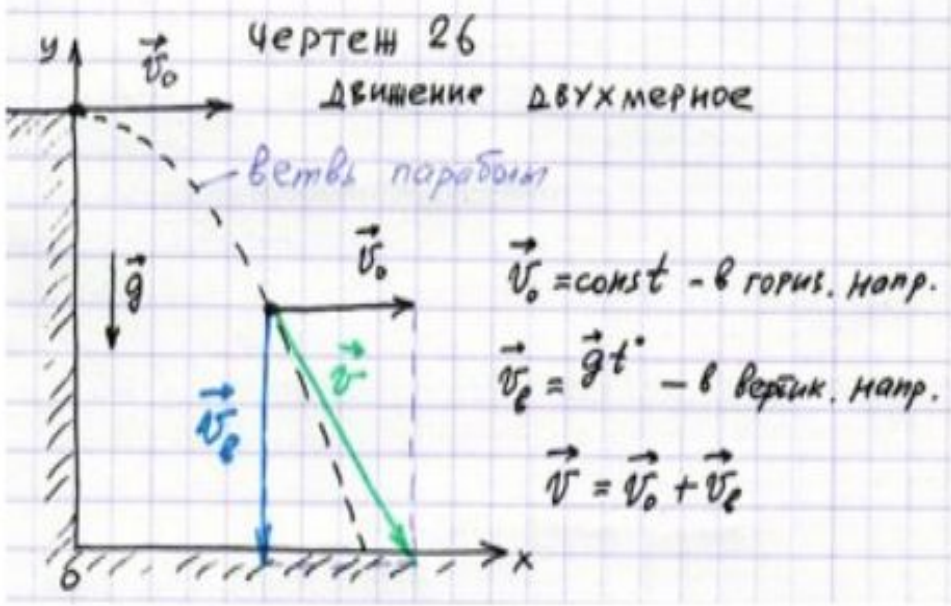 Чертеж 26
Движение двухмерное
y
v⃗₀
ветвь параболы
g⃗
v⃗₀
v⃗
v⃗в
v⃗₀ = const - в гориз. напр.
v⃗в = g⃗t - в вертик. напр.
v⃗ = v⃗₀ + v⃗в
0
x